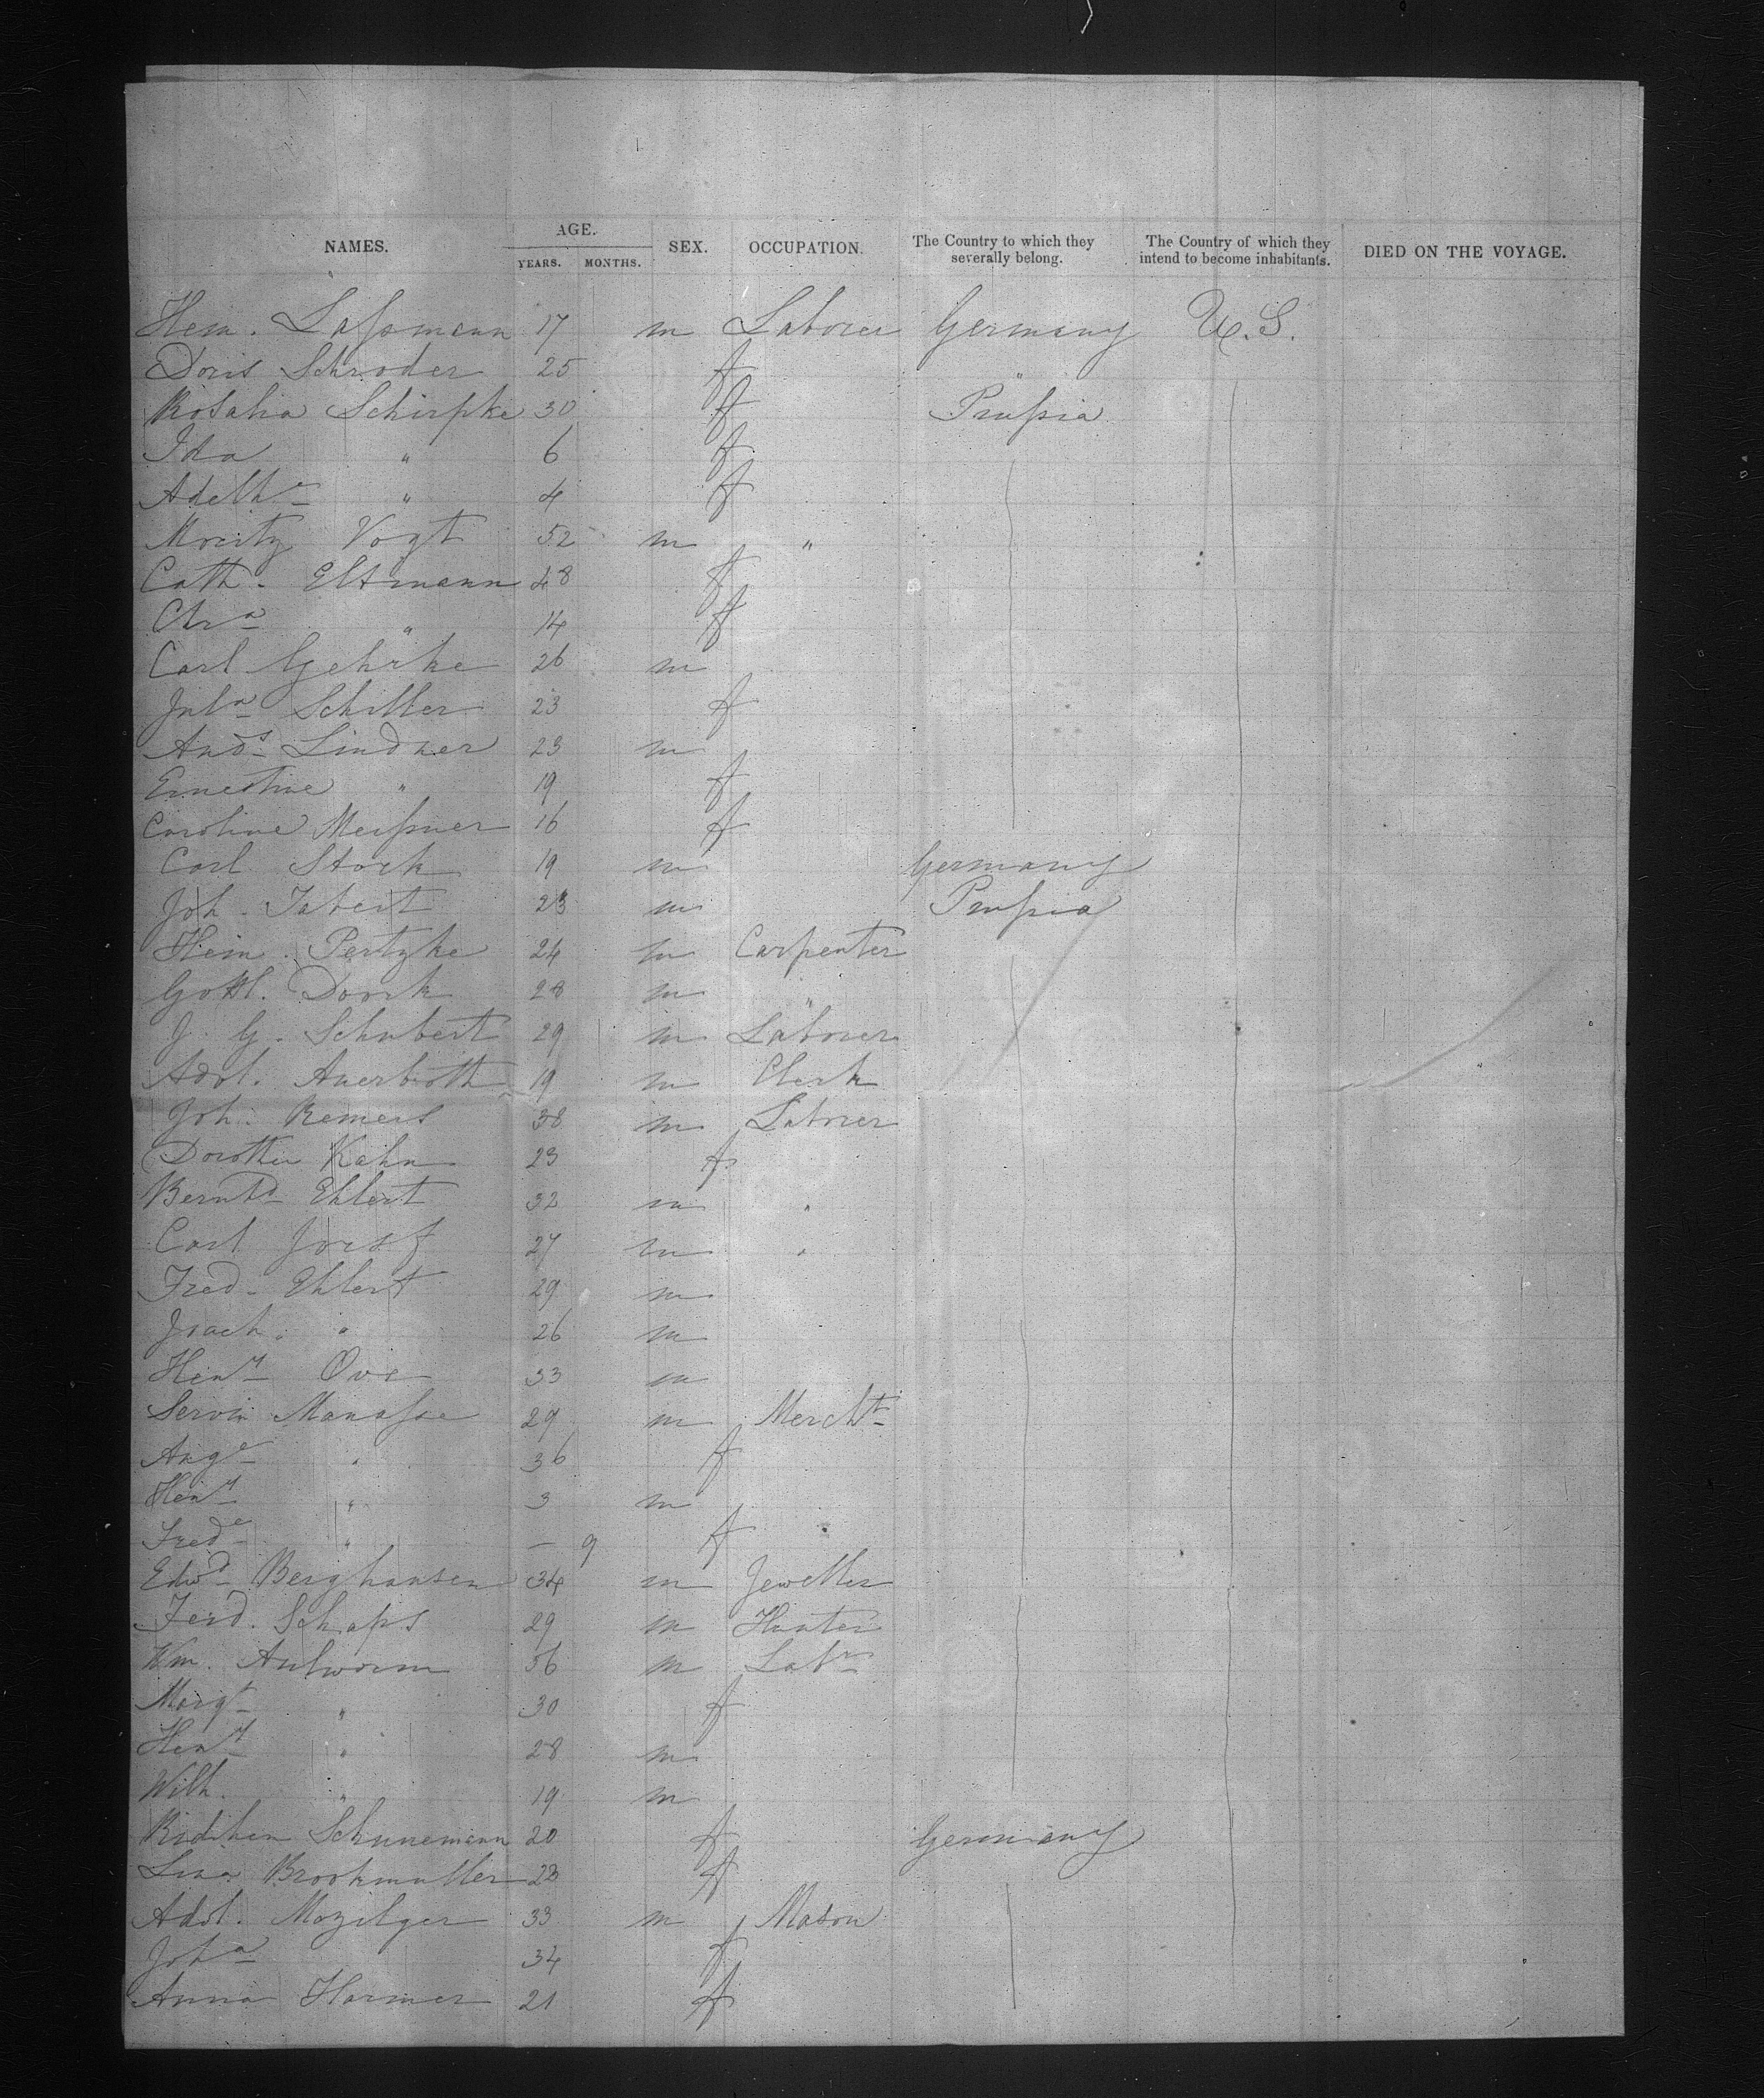 NAMES. AGE. YEARS. MONTHS. SEX. OCCUPATION. The Country to which they severally belong. The Country of which they intend to become inhabitants. DIED ON THE VOYAGE.
Hein. Laßmann 17 m Laborer Germany U.S.
Doris Schroder 25 f "
Rosalia Schirpke 30 f Prußia
Ida " 6 f
Adelhe " 4 f
Moritz Vogt 52 m "
Cath. Eltmann 48 f
Chra " 14 f
Carl Gehrke 26 m
Jula Schiller 23 f
Ands Lindner 23 m
Ernestine " 19 f
Caroline Meißner 16 f
Carl Stork 19 m Germany
Joh. Tabert 23 m Prußia
Hein. Pertzke 24 m Carpenter
Gottl. Doork 28 m "
J. G. Schubert 29 m Laborer
Adol. Auerboth 19 m Clerk
Joh. Remers 38 m Laborer
Dorothea Kahn 23 f
Bernhd Ehlert 32 m "
Carl 27 m "
Fred. Ehlert 29 m
Joach. " 26 m
Henry Ove 33 m
Manaße 29 m Mercht
Auge " 36 f
Henry " 3 m
Frede " — 9 f
Edwd Berghausen 34 m Jeweller
Ferd. Schaps 29 m Hunter
Wm. Aulworm 56 m Labr
Margt " 30 f
Henry " 28 m
Wilh. " 19 m
Schunemann 20 f Germany
Lina Brookmuller 28 f
Adol. Mozilger 33 m Mason
Joha 34 f
Anna Harmer 21 f